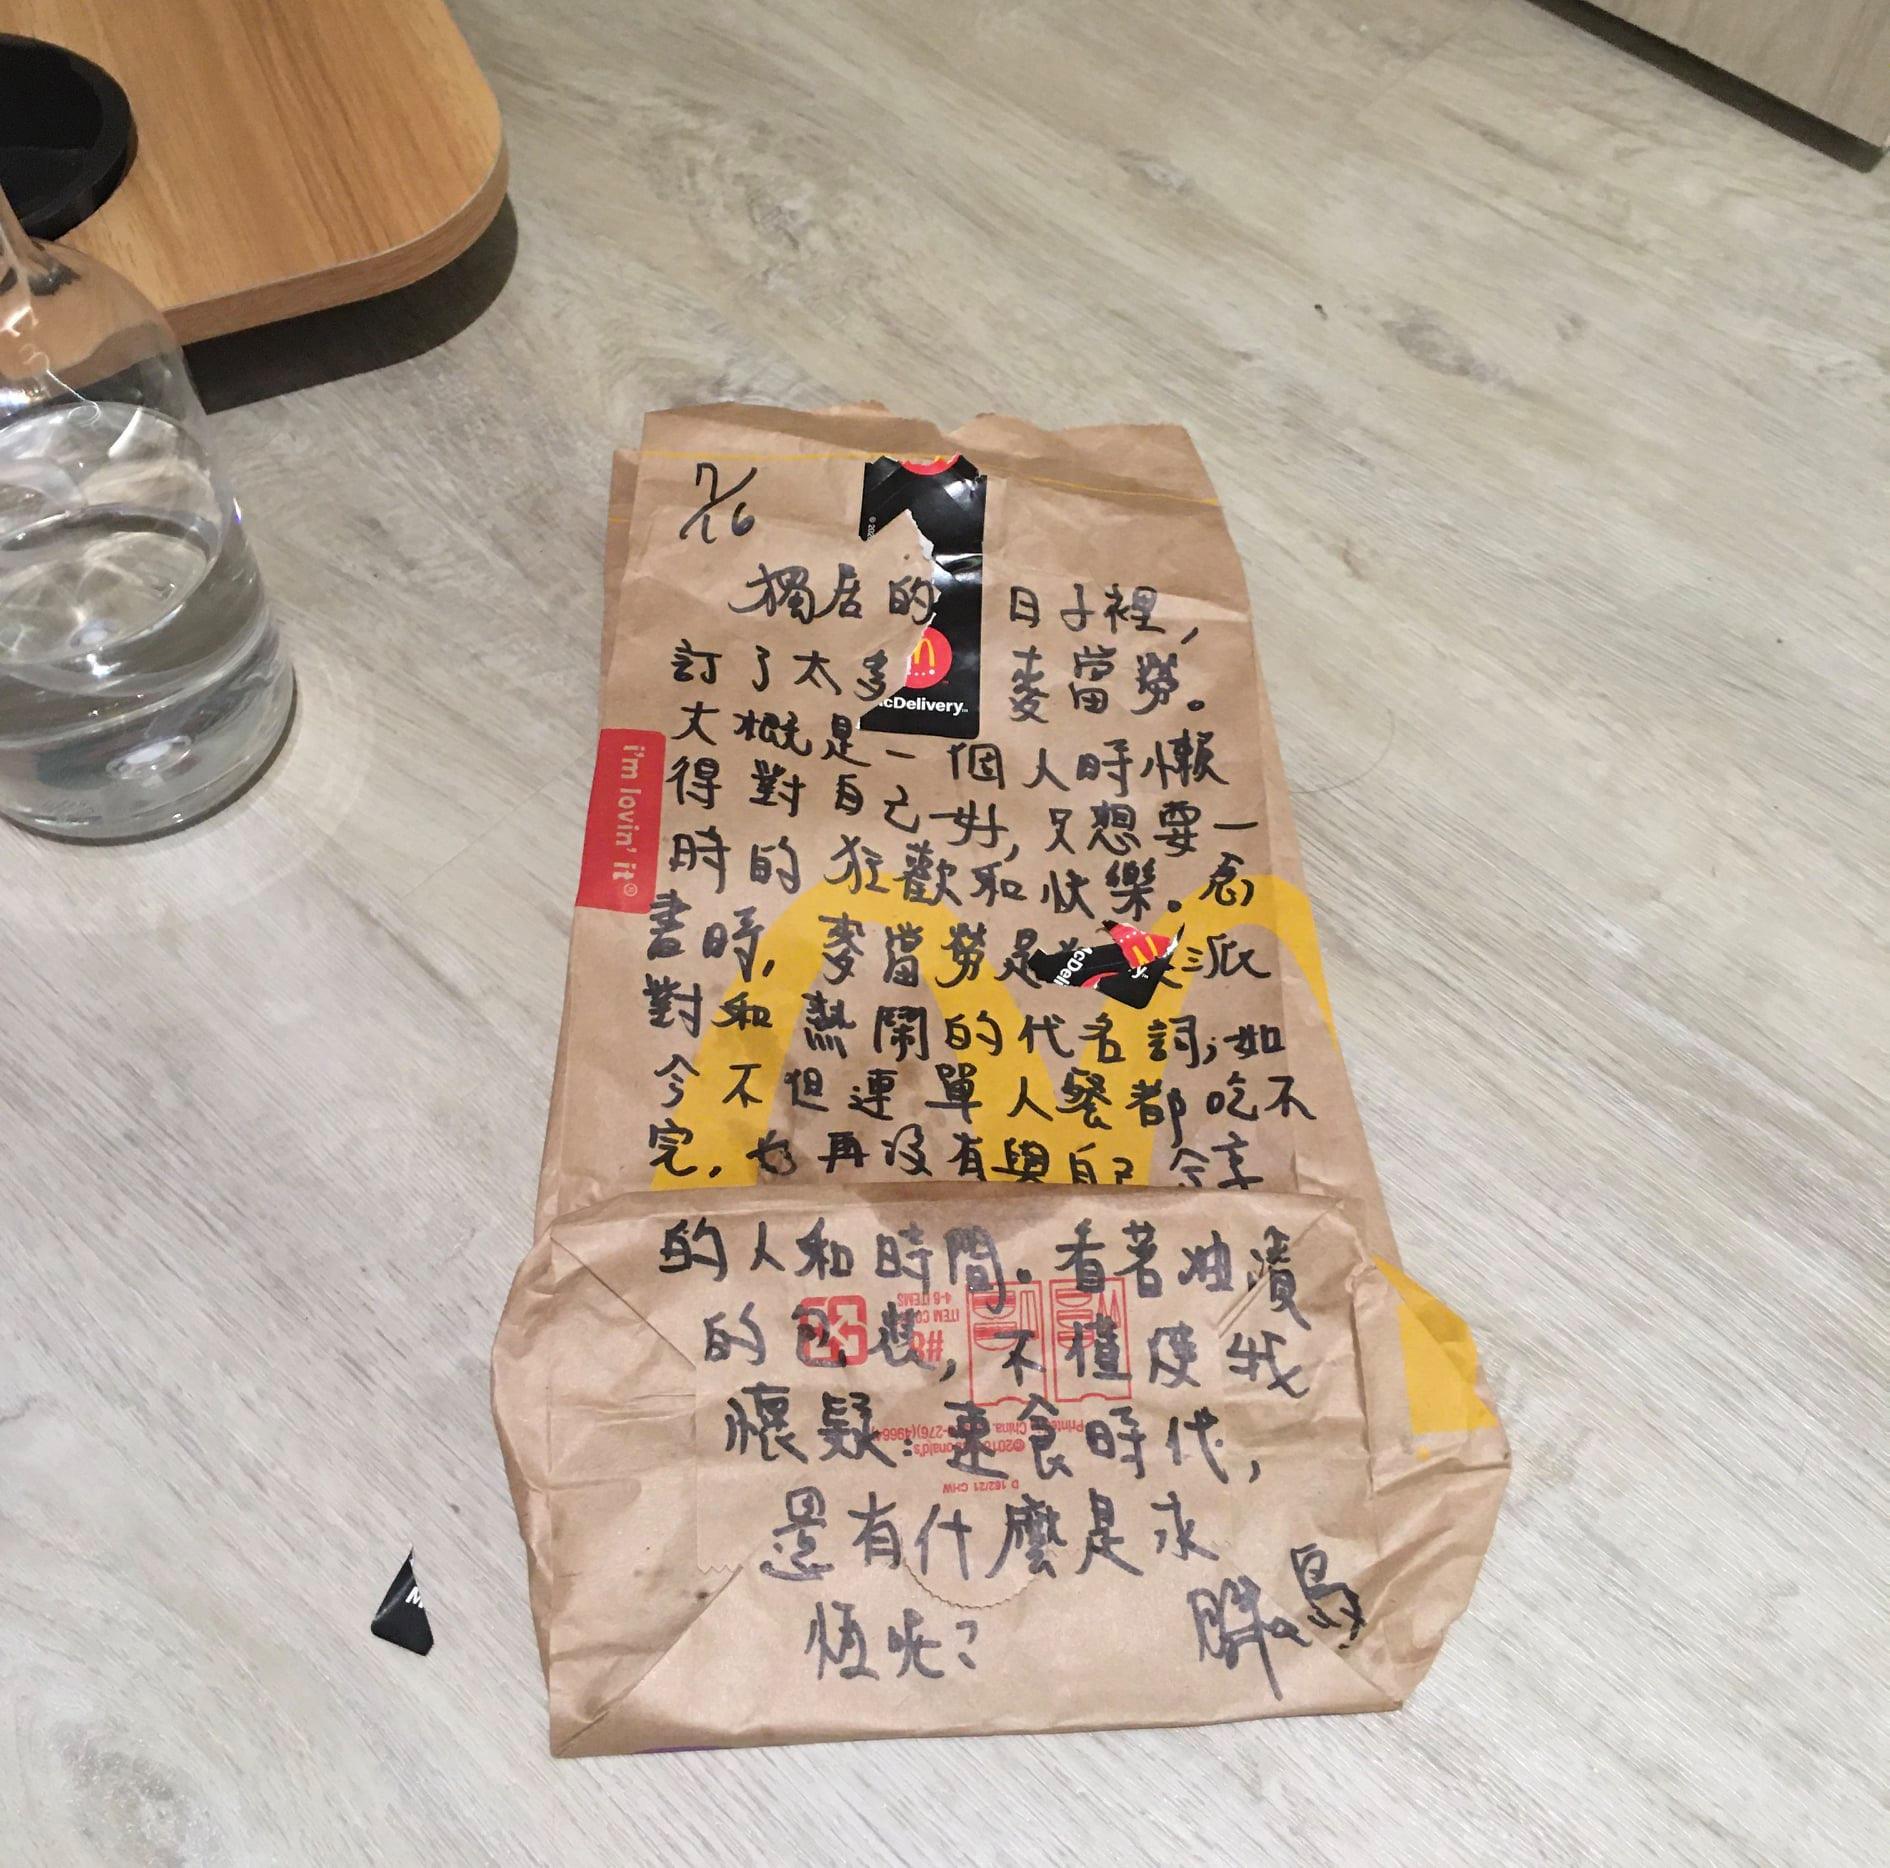 7/16
獨居的 日子裡,
訂了太多 麥當勞。
大概是一個人時懶
得對自己好,又想要一
時的狂歡和快樂。念
書時,麥當勞是 派
對和熱鬧的代名詞;如
今不但連單人餐都吃不
完,也再沒有與自己分享
的人和時間。看著油漬
的包裝,不禁使我
懷疑:速食時代,
還有什麼是永
恆呢?
McDelivery™
i'm lovin' it®
4-6 ITEMS
D 162/21 CHW